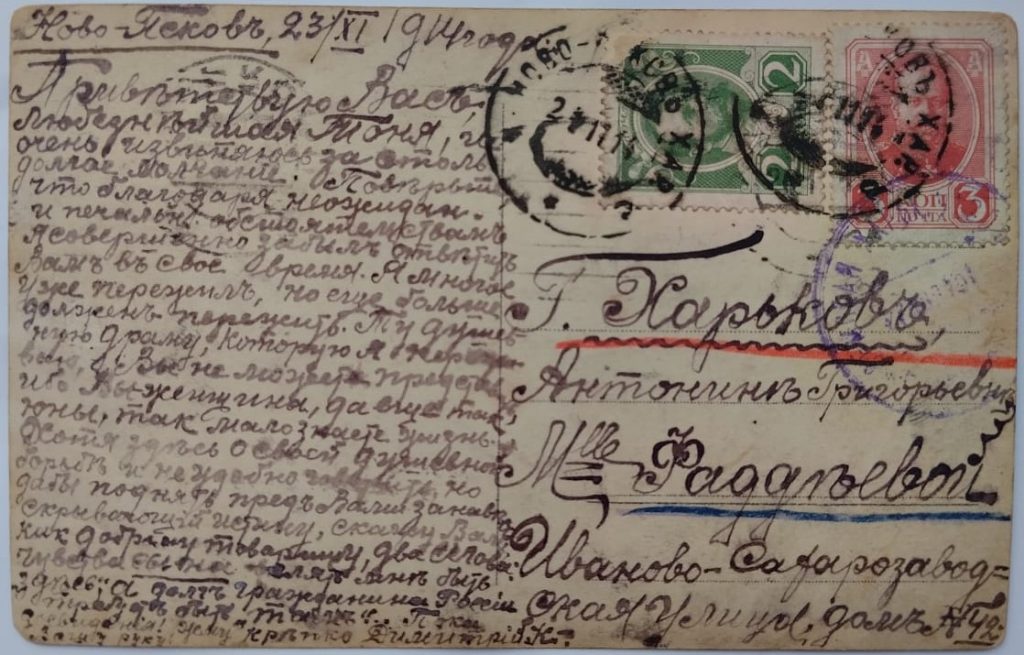 Ново-Псковъ, 23/XI 1914 года
Привѣтствую Васъ,
любезнѣйшая Тоня, и
очень извиняюсь за столь
долгое молчание. Повѣрьте,
что благодаря неожидан.
и печальн. обстоятельствамъ
я совершенно забылъ отвѣтить
Вамъ въ свое время. Я многое
уже пережилъ, но еще больше
долженъ пережить. Ту душев-
ную драму, которую я пережи-
ваю, Вы не можете представ.,
ибо Вы женщина, да еще так
юны, так мало знаете жизнь.
Хотя здѣсь о своей душевной
борьбѣ и не удобно говорить, но
дабы поднять предъ Вами занавѣс,
скрывающий истину, скажу Вамъ
как доброму товарищу, два слова:
чувства сына велят мнѣ быть
здѣсь, а долг гражданина России
требуетъ быть "тамъ". Пока
Вашу руку крѣпко Димитрій К.
НОВО-ПСКОВЪ ХАР.
2
2
3
КОП
ПОЧТА
Г. Харьковъ,
Антонинѣ Григорьевнѣ
Mlle Фаддѣевой
Иваново-Сахарозавод=
ская Улица, домъ № 42